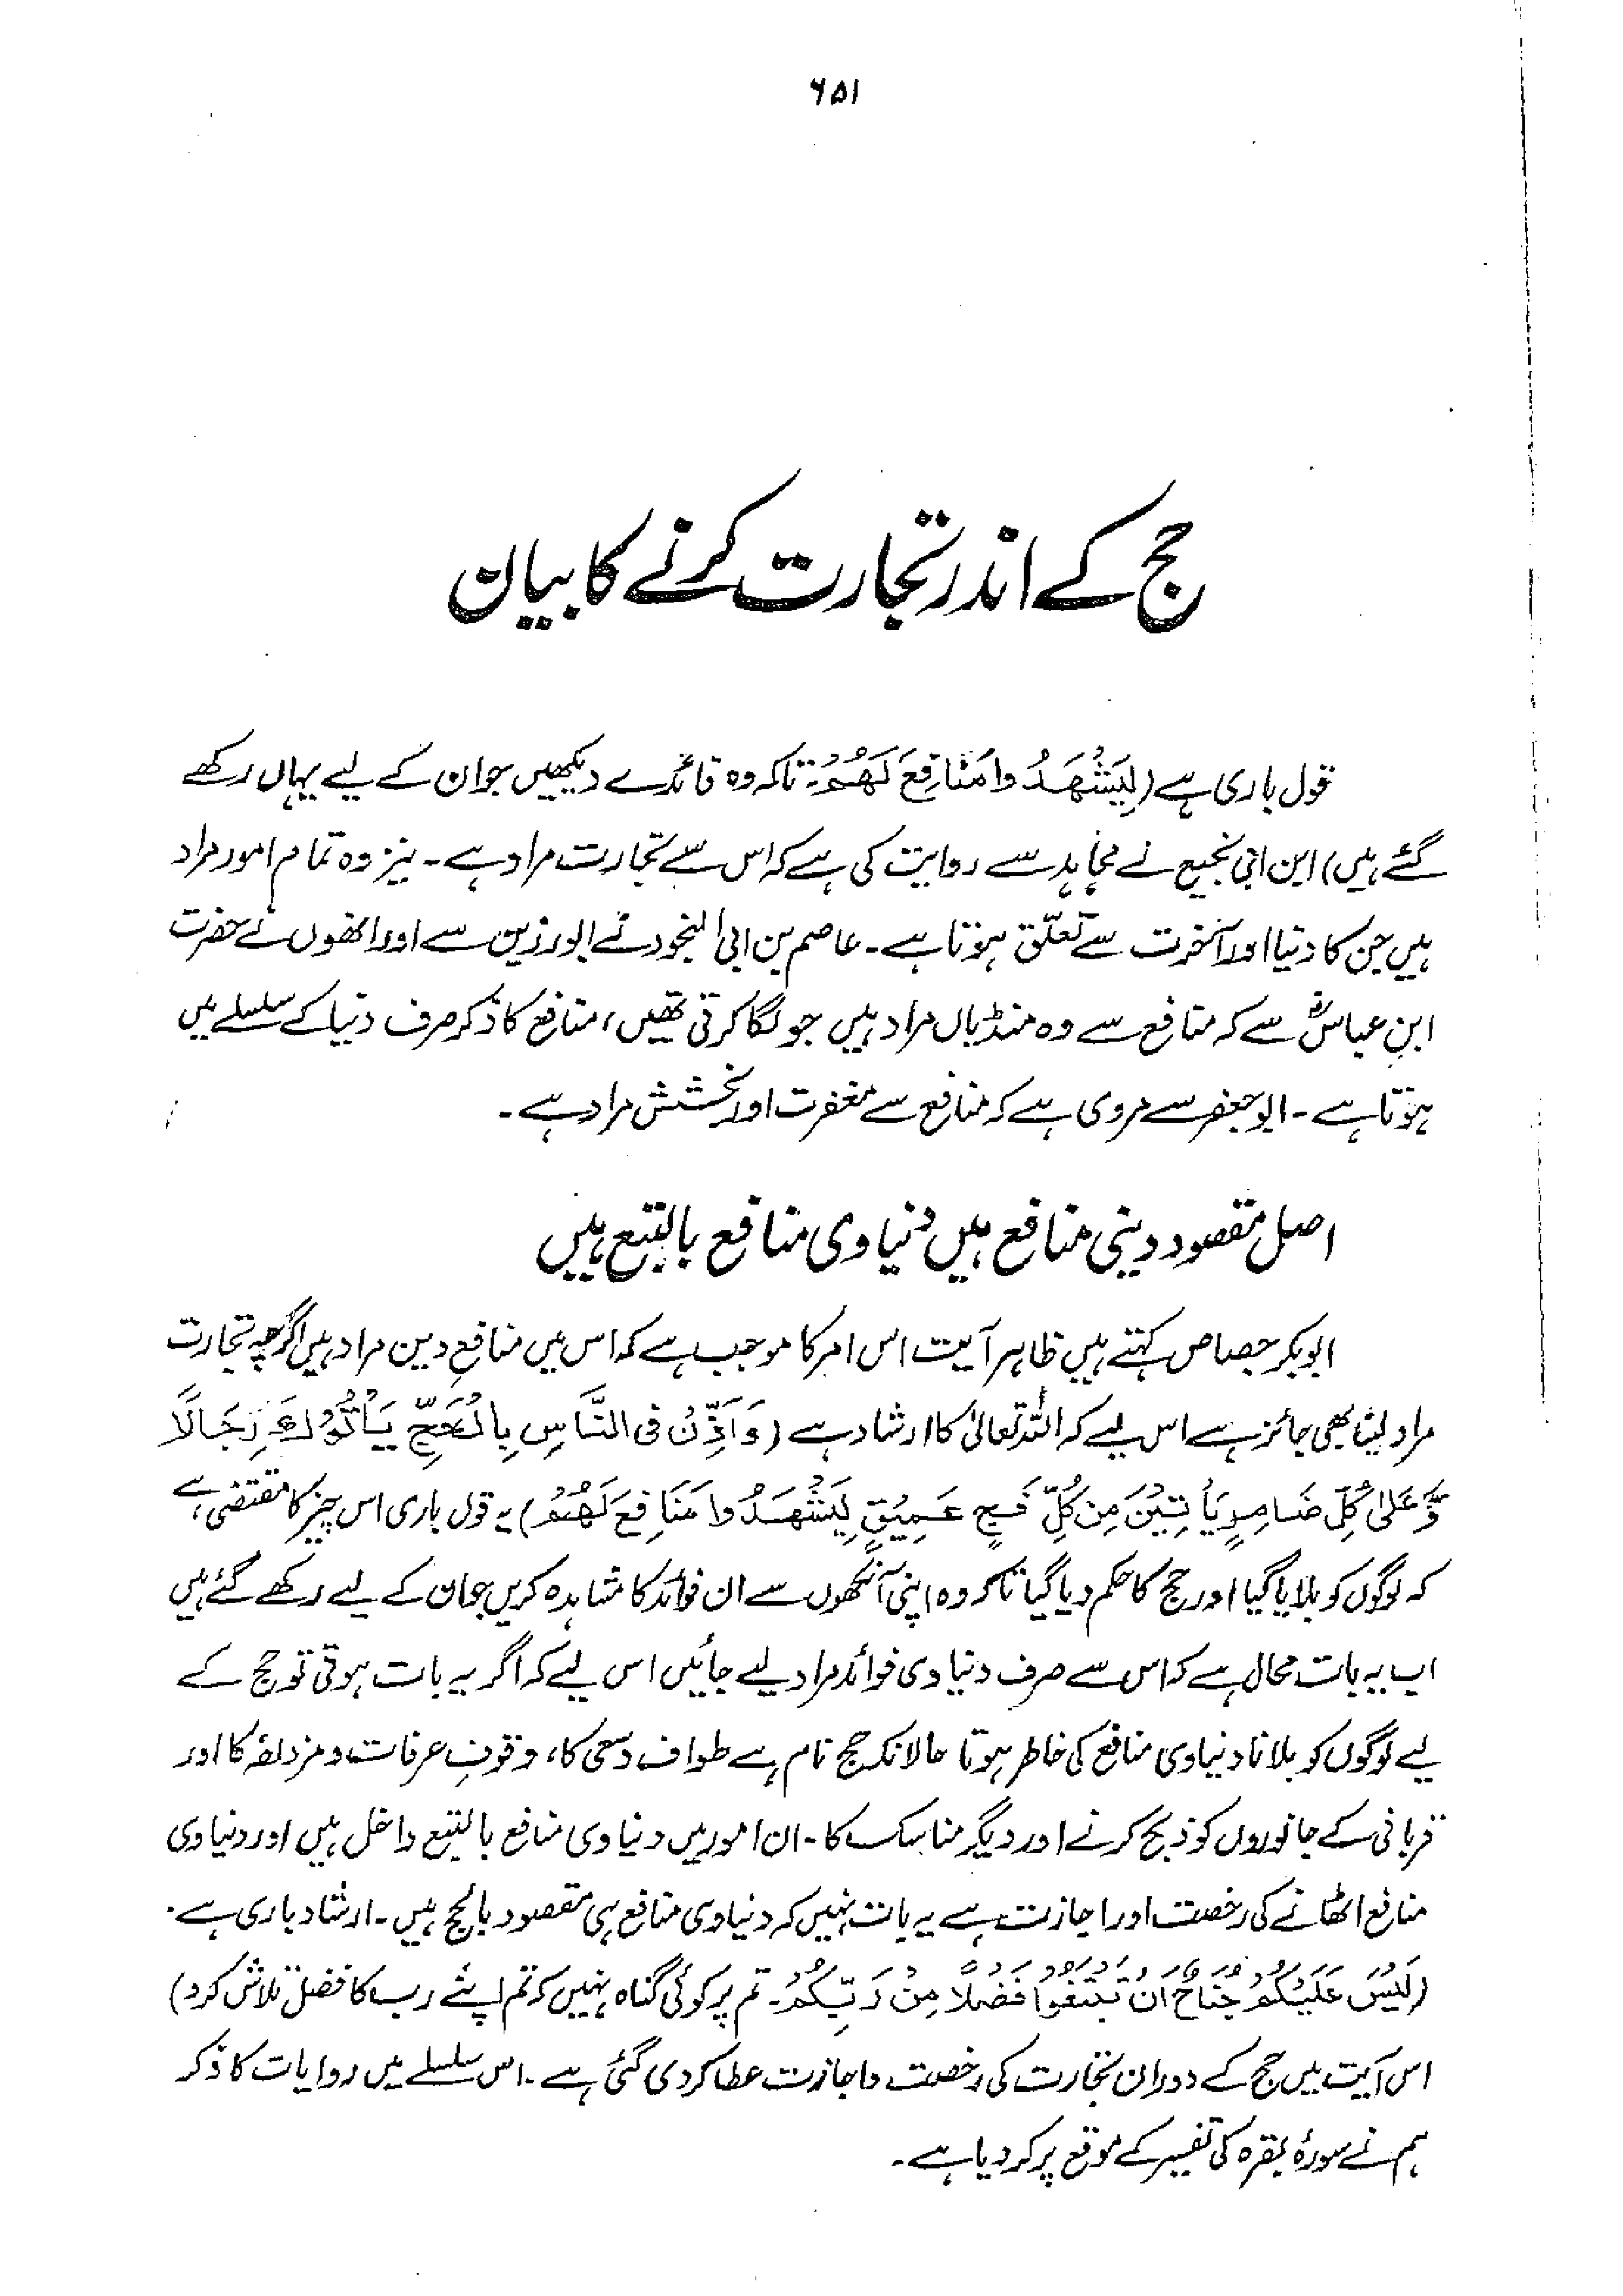 ۶۵۱
حج کے اندر تجارت کرنے کا بیان
قول باری ہے (لِیَشْهَدُوا مَنَافِعَ لَهُمْ۔ تاکہ وہ فائدے دیکھیں جو ان کے لیے یہاں رکھے
گئے ہیں) ابن ابی نجیح نے مجاہد سے روایت کی ہے کہ اس سے تجارت مراد ہے۔ نیز وہ تمام امور مراد
ہیں جن کا دنیا اور آخرت سے تعلّق ہوتا ہے۔ عاصم بن ابی النجود نے ابورزین سے اور انھوں نے حضرت
ابنِ عباسؓ سے کہ منافع سے وہ منڈیاں مراد ہیں جو لگا کرتی تھیں، منافع کا ذکر صرف دنیا کے سلسلے میں
ہوتا ہے۔ ابوجعفر سے مروی ہے کہ منافع سے مغفرت اور بخشش مراد ہے۔
اصل مقصود دینی منافع ہیں دنیاوی منافع بالتبع ہیں
ابوبکر جصاص کہتے ہیں ظاہر آیت اس امر کا موجب ہے کہ اس میں منافعِ دین مراد ہیں اگرچہ تجارت
مراد لینا بھی جائز ہے اس لیے کہ اللہ تعالیٰ کا ارشاد ہے (وَاَذِّنْ فِی النَّاسِ بِالْحَجِّ یَأْتُوْكَ رِجَالًا
وَّعَلٰی کُلِّ ضَامِرٍ یَأْتِیْنَ مِنْ کُلِّ فَجٍّ عَمِیْقٍ لِیَشْهَدُوا مَنَافِعَ لَهُمْ) یہ قول باری اس چیز کا مقتضی ہے
کہ لوگوں کو بلایا گیا اور حج کا حکم دیا گیا تاکہ وہ اپنی آنکھوں سے ان فوائد کا مشاہدہ کریں جو ان کے لیے رکھے گئے ہیں
اب یہ بات محال ہے کہ اس سے صرف دنیاوی فوائد مراد لیے جائیں اس لیے کہ اگر یہ بات ہوتی تو حج کے
لیے لوگوں کو بلانا دنیاوی منافع کی خاطر ہوتا حالانکہ حج نام ہے طواف وسعی کا، وقوفِ عرفات و مزدلفہ کا اور
قربانی کے جانوروں کو ذبح کرنے اور دیگر مناسک کا۔ ان امور میں دنیاوی منافع بالتبع داخل ہیں اور دنیاوی
منافع اٹھانے کی رخصت اور اجازت ہے یہ بات نہیں کہ دنیاوی منافع ہی مقصود بالحج ہیں۔ ارشاد باری ہے۔
(لَیْسَ عَلَیْکُمْ جُنَاحٌ اَنْ تَبْتَغُوْا فَضْلًا مِنْ رَبِّکُمْ۔ تم پر کوئی گناہ نہیں کہ تم اپنے رب کا فضل تلاش کرو)
اس آیت میں حج کے دوران تجارت کی رخصت واجازت عطا کردی گئی ہے۔ اس سلسلے میں روایات کا ذکر
ہم نے سورۂ بقرہ کی تفسیر کے موقع پر کر دیا ہے۔